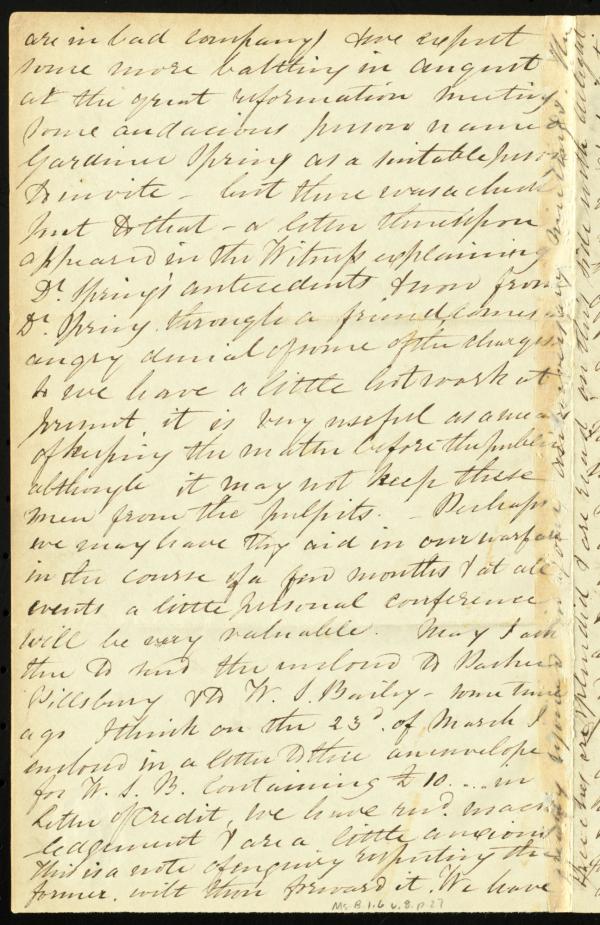 are in bad company) & we expect
some more battling in august
at the great reformation meeting
Some audacious person named
Gardiner Spring as a suitable person
to invite - but there was a check
put to that - a letter thereupon
appeared in the Witness explaining
Dr. Spring's antecedents & now from
Dr. Spring through a friend comes an
angry denial of some of the charges
so we have a little hot work at
present, it is very useful as a means
of keeping the matter before the public
although it may not keep these
men from the pulpits. - Perhaps
we may have thy aid in our warfare
in the course of a few months & at all
events a little personal conference
will be very valuable. May I ask
thee to send the inclosed to Parker
Pillsbury & to W. S. Bailey - some time
ago I think on the 23d. of March I
enclosed in a letter to thee an envelope
for W. S. B. containing £10 .... in
letter of credit, we have recd. no ack
-ledgement & are a little anxious
this is a note of enquiry respecting the
former. wilt thou forward it. We have
Ms. B.1.6 v.8. p.27
on this side with delight
splendid & are